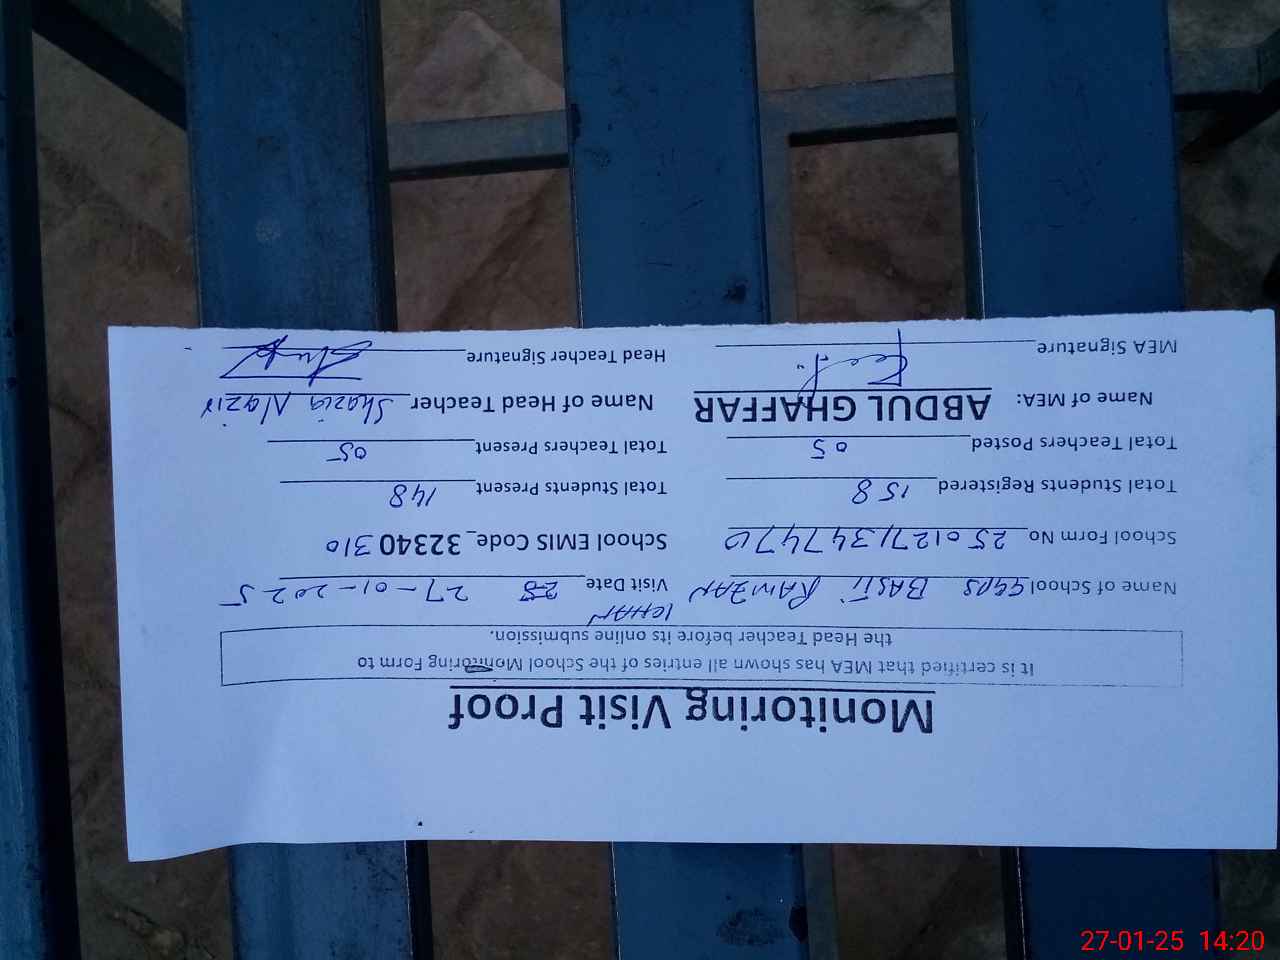 Monitoring Visit Proof
It is certified that MEA has shown all entries of the School Monitoring Form to
the Head Teacher before its online submission.
Name of School GGPS BASTI RAMZAN Visit Date 27-01-2025
School Form No 250127134747 School EMIS Code_32340310
Total Students Registered 158 Total Students Present 148
Total Teachers Posted 05 Total Teachers Present 05
Name of MEA: ABDUL GHAFFAR Name of Head Teacher Shazia Nazir
MEA Signature Head Teacher Signature
27-01-25 14:20